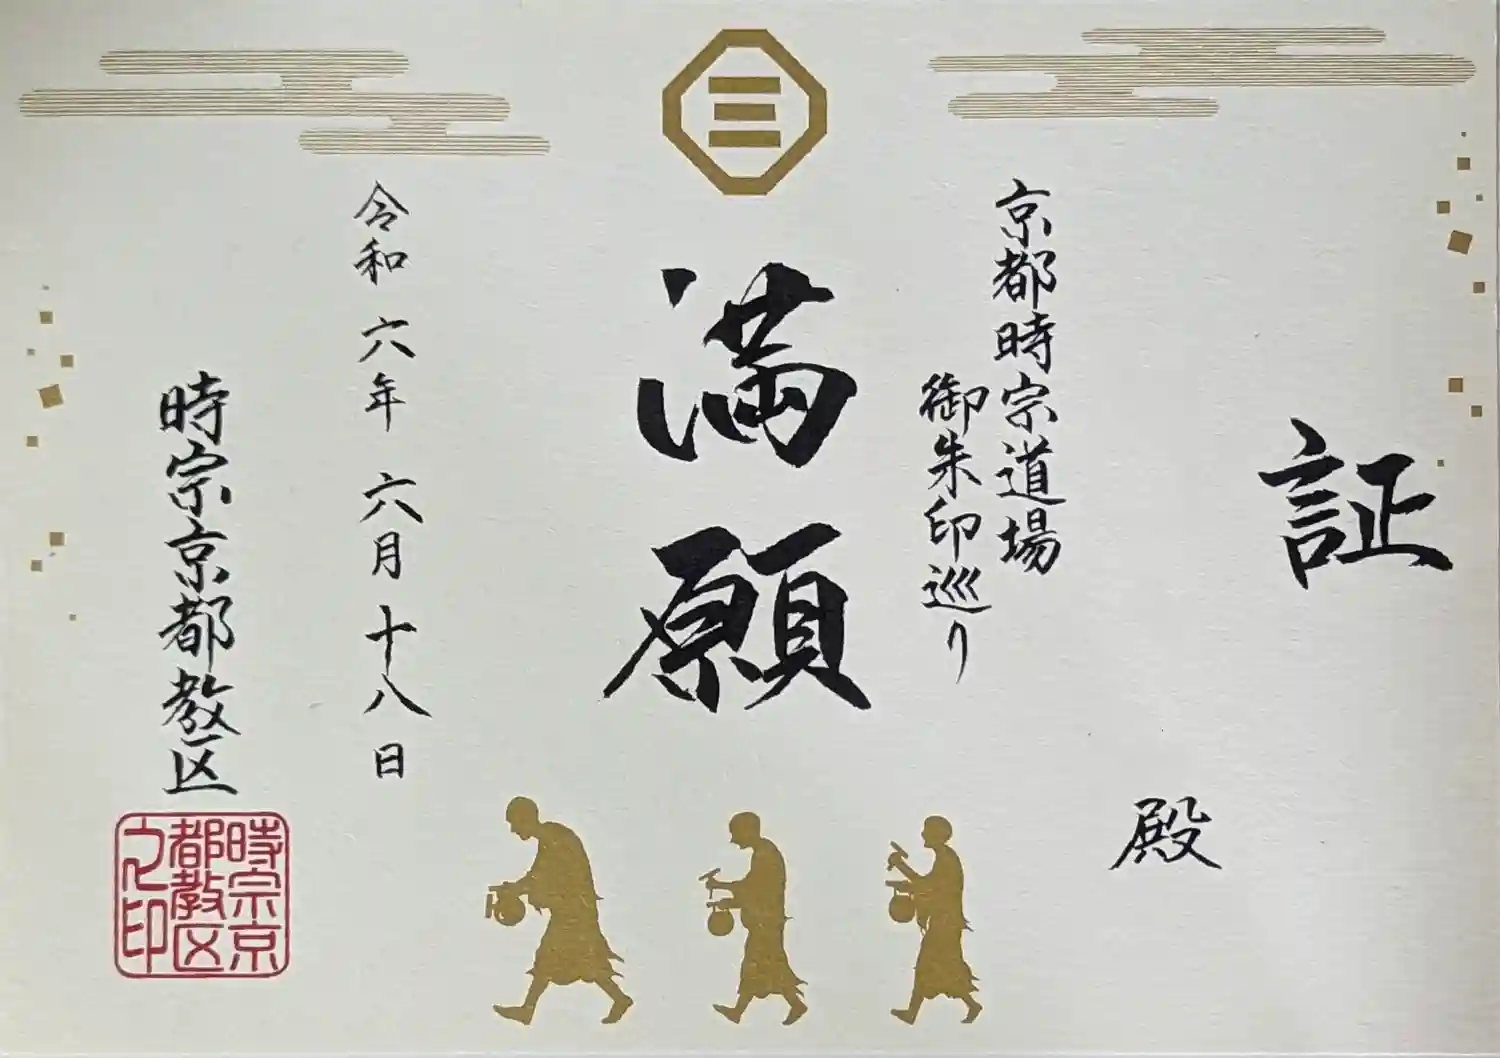 証
殿
京都時宗道場
御朱印巡り
満願
令和六年六月十八日
時宗京都教区
時宗京
都教区
之印